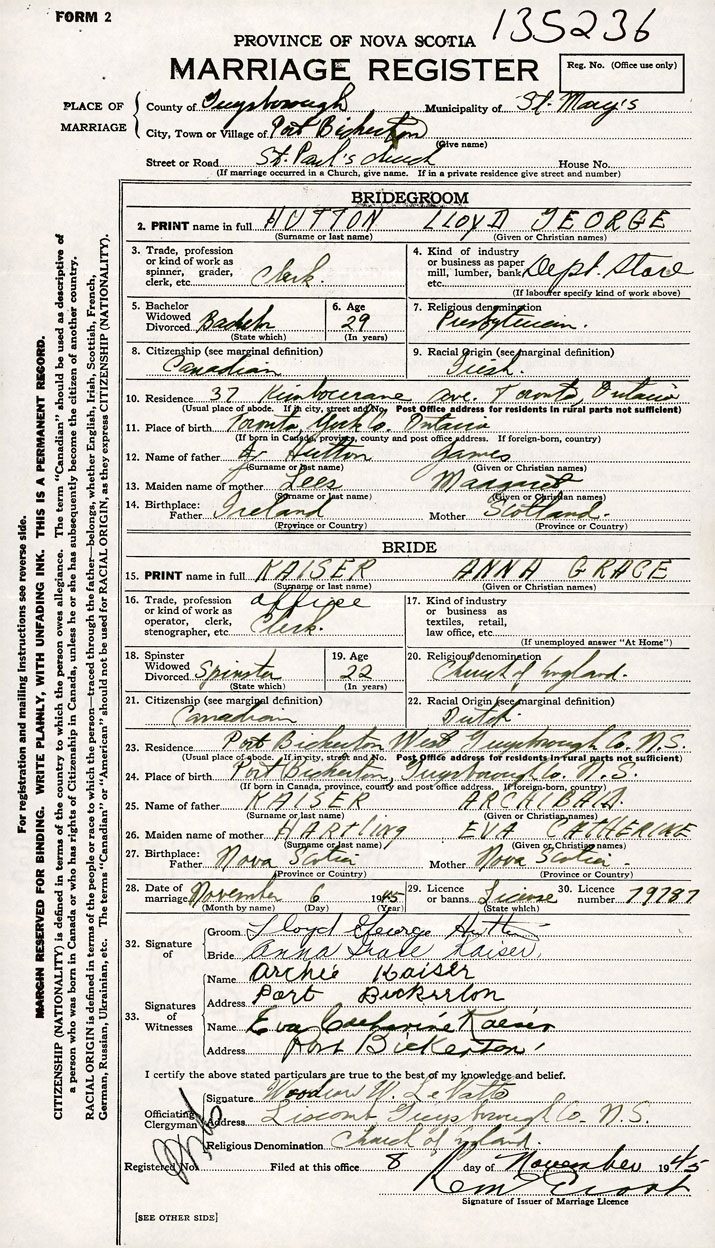 FORM 2
135236
PROVINCE OF NOVA SCOTIA
MARRIAGE REGISTER
Reg. No. (Office use only)
PLACE OF MARRIAGE
County of Guysborough Municipality of St. Mary's
City, Town or Village of Port Bickerton
(Give name)
Street or Road St. Paul's church House No.
(If marriage occurred in a Church, give name. If in a private residence give street and number)
BRIDEGROOM
2. PRINT name in full HUTTON LLOYD GEORGE
(Surname or last name) (Given or Christian names)
3. Trade, profession or kind of work as spinner, grader, clerk, etc. Clerk.
4. Kind of industry or business as paper mill, lumber, bank, etc. Dept. Store
(If labourer specify kind of work above)
5. Bachelor Widowed Divorced Bachelor
(State which)
6. Age 29
(In years)
7. Religious denomination
Presbyterian.
8. Citizenship (see marginal definition)
Canadian
9. Racial Origin (see marginal definition)
Irish.
10. Residence 37 ave. Toronto, Ontario
(Usual place of abode. If in city, street and No. Post Office address for residents in rural parts not sufficient)
11. Place of birth Toronto, York Co. Ontario
(If born in Canada, province, county and post office address. If foreign-born, country)
12. Name of father Hutton James
(Surname or last name) (Given or Christian names)
13. Maiden name of mother Lees Margaret
(Surname or last name) (Given or Christian names)
14. Birthplace: Father Ireland Mother Scotland.
(Province or Country) (Province or Country)
BRIDE
15. PRINT name in full KAISER ANNA GRACE
(Surname or last name) (Given or Christian names)
16. Trade, profession or kind of work as operator, clerk, stenographer, etc. office Clerk.
17. Kind of industry or business as textiles, retail, law office, etc.
(If unemployed answer "At Home")
18. Spinster Widowed Divorced Spinster
(State which)
19. Age 22
(In years)
20. Religious denomination
Church of England.
21. Citizenship (see marginal definition)
Canadian
22. Racial Origin (see marginal definition)
Dutch.
23. Residence Port Bickerton West Guysborough Co. N.S.
(Usual place of abode. If in city, street and No. Post Office address for residents in rural parts not sufficient)
24. Place of birth Port Bickerton, Guysborough Co. N.S.
(If born in Canada, province, county and post office address. If foreign-born, country)
25. Name of father KAISER ARCHIBALD.
(Surname or last name) (Given or Christian names)
26. Maiden name of mother HARTLING EVA CATHERINE
(Surname or last name) (Given or Christian names)
27. Birthplace: Father Nova Scotia Mother Nova Scotia.
(Province or Country) (Province or Country)
28. Date of marriage November 6 1945
(Month by name) (Day) (Year)
29. Licence or banns. License
(State which)
30. Licence number 79787
32. Signature of
Groom Lloyd George Hutton
Bride Anna Grace Kaiser
33. Signatures of Witnesses
Name Archie Kaiser
Address Port Bickerton
Name Eva Catharine Kaiser
Address Port Bickerton
I certify the above stated particulars are true to the best of my knowledge and belief.
Officiating Clergyman
Signature Woodrow W. LeVatte
Address Liscomb Guysborough Co. N.S.
Religious Denomination Church of England.
Registered No. Filed at this office 8 day of November 1945
Signature of Issuer of Marriage Licence
[SEE OTHER SIDE]
For registration and mailing instructions see reverse side.
MARGIN RESERVED FOR BINDING. WRITE PLAINLY, WITH UNFADING INK. THIS IS A PERMANENT RECORD.
CITIZENSHIP (NATIONALITY) is defined in terms of the country to which the person owes allegiance. The term "Canadian" should be used as descriptive of
a person who was born in Canada or who has rights of Citizenship in Canada, unless he or she has subsequently become the citizen of another country.
RACIAL ORIGIN is defined in terms of the people or race to which the person—traced through the father—belongs, whether English, Irish, Scottish, French,
German, Russian, Ukrainian, etc. The terms "Canadian" or "American" should not be used for RACIAL ORIGIN, as they express CITIZENSHIP (NATIONALITY).